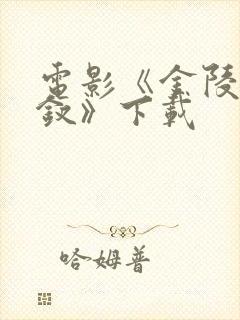 電影《金陵
釵》下載
哈姆普